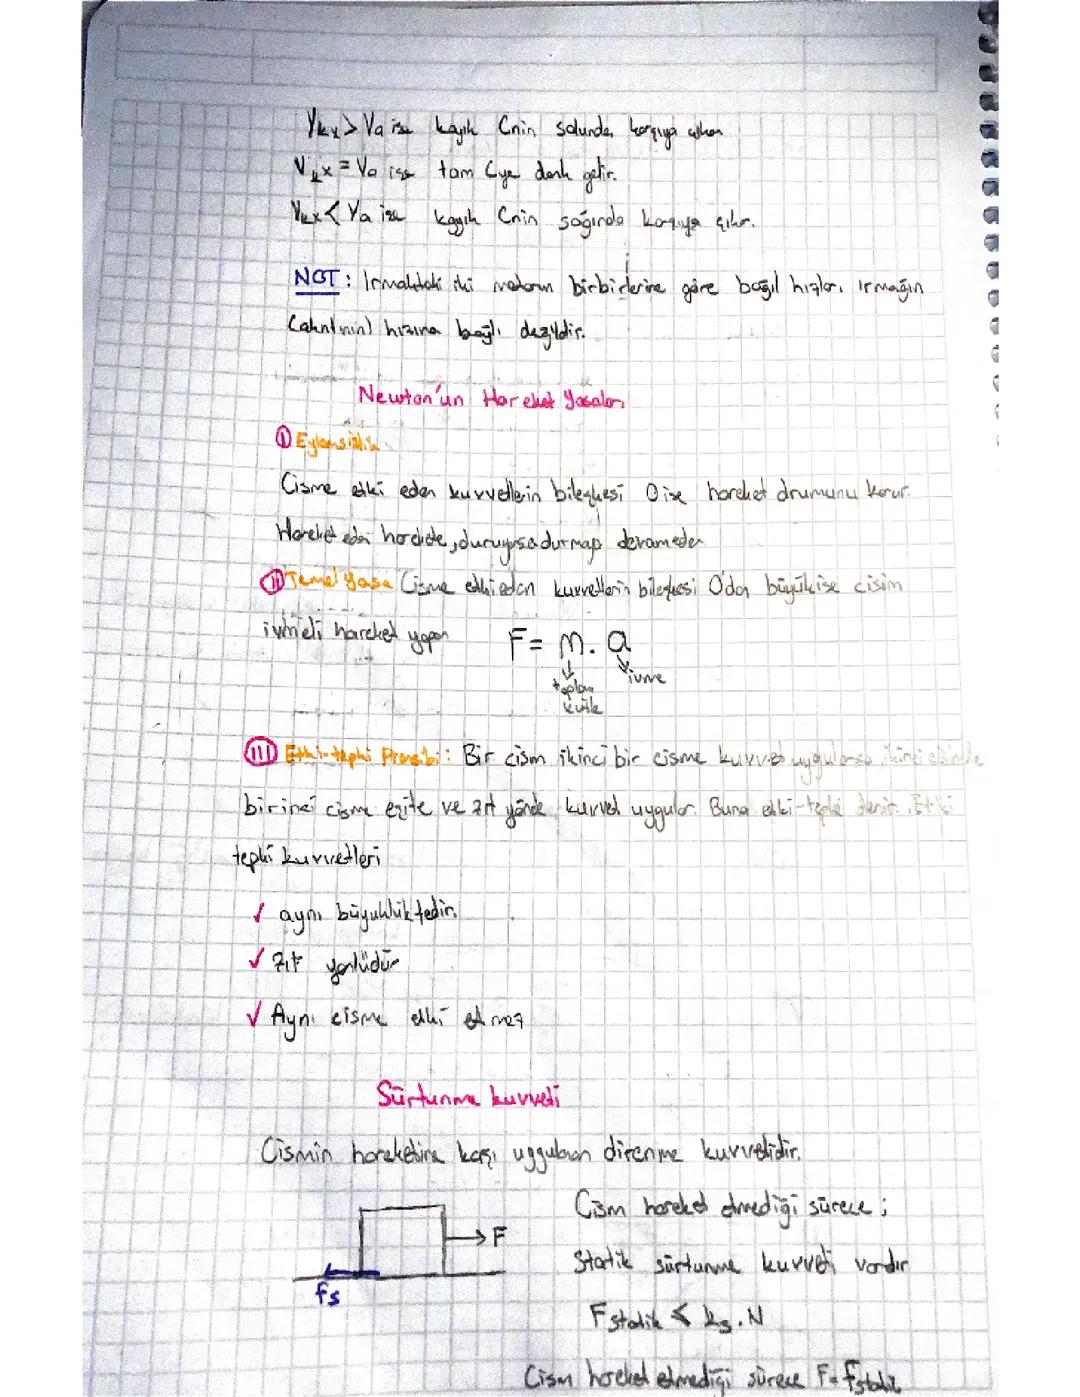 Vkx > Va ise kayık Cnin solunda karşıya çıkar
Vkx = Va ise tam Cye denk gelir.
Vkx < Va ise kayık Cnin sağında karşıya çıkar.
NOT: Irmaktaki iki motorun birbirlerine göre bağıl hızları ırmağın
(akıntının) hızına bağlı değildir.
Newton'un Hareket Yasaları
I Eylemsizlik
Cisme etki eden kuvvetlerin bileşkesi 0 ise hareket drumunu korur.
Hareket eden harekete, duruyorsa durmaya devam eder
II Temel Yasa Cisme etki eden kuvvetlerin bileşkesi 0'dan büyük ise cisim
ivmeli hareket yapar F = m . a
toplam kütle
ivme
III Etki-tepki Prensibi: Bir cisim ikinci bir cisme kuvvet uygularsa, ikinci cisimde
birinci cisme eşite ve zıt yönde kuvvet uygular. Buna etki-tepki denir. Etki
tepki kuvvetleri
✓ aynı büyüklüktedir.
✓ Zıt yönlüdür
✓ Aynı cisme etki etmez
Sürtünme kuvveti
Cismin hareketine karşı uygulanan direnme kuvvetidir.
Cisim hareket etmediği sürece ;
F
Statik sürtünme kuvveti vardır
fs
Fstatik ≤ ks . N
Cisim hareket etmediği sürece F = fstatik